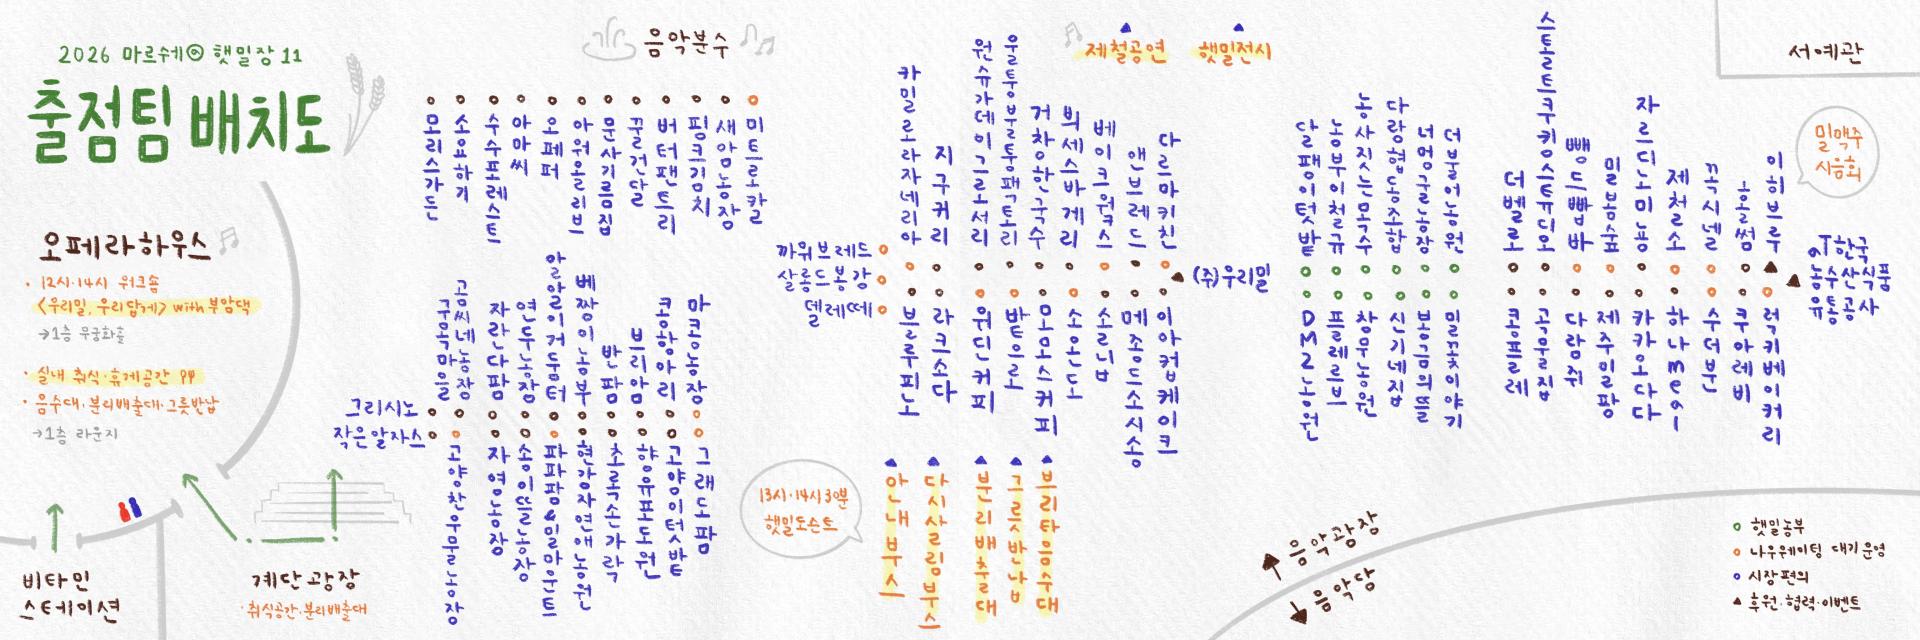 2026 마르쉐@ 햇밀장 11
출점팀 배치도
오페라하우스
· 12시·14시 워크숍
<우리밀, 우리답게> with 부암댁
→1층 무궁화홀
· 실내 취식·휴게공간
· 음수대·분리배출대·그릇반납
→1층 라운지
비타민
스테이션
계단광장
· 취식공간·분리배출대
음악분수
모리스가든
소요하기
수수포레스트
아마씨
오페퍼
아워올리브
문사기름집
꿀건달
버터팬트리
핑크김치
새암농장
미트로칼
꾸욱마을
곰씨네농장
자란다팜
연두농장
알알이거둠터
베짱이농부
반팜
브리아밈
콩항아리
마콩농장
그리시노
작은알자스
고양찬우물농장
자영농장
송이뜰농장
파파팜&밀마운트
현강자연애농원
초록손가락
향유포도원
고양이텃밭
그래도팜
까위브레드
살롱드봉강
델레떼
카밀로라자네리아
지구커리
원슈가데이그로서리
울퉁불퉁팩토리
거창한국수
빅세스바게리
베이크워크스
앤브레드
다르마키친
(주)우리밀
블루피노
라크소다
원딘커피
밭으로
모모스커피
소온도
소리냅
메종드소시송
이아컵케이크
제철공연
햇밀전시
안내부스
다시살림부스
분리배출대
그릇반납
브리타음수대
13시·14시30분
햇밀도슨트
달팽이텃밭
농부이철규
농사짓는목수
다랑협동조합
너멍굴농장
더불어농원
DMZ농원
플레르브
참무농원
신기네집
봉금의뜰
밀꽃이야기
더벨로
스토로트쿠키앙스튜디오
빵드빱바
밀봄숲
자르디노미뇽
제철소
꼬시넬
호호썸
이히브루
콩플레
고물집
다람쥐
제주밀팡
카카오다다
하나meal
수더분
쿠아레비
럭키베이커리
서예관
밀맥주
시음회
aT한국
농수산식품
유통공사
음악광장
음악당
햇밀농부
나우웨이팅 대기 운영
시장편의
후원·협력·이벤트